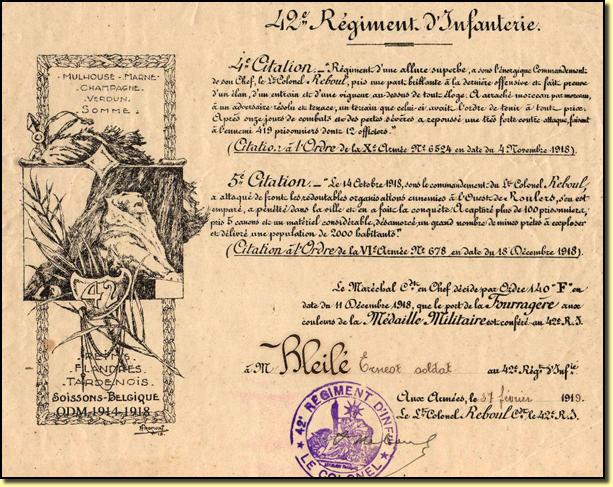 42e Régiment d'Infanterie.
MULHOUSE - MARNE -
CHAMPAGNE -
VERDUN -
SOMME -
42
REIMS
FLANDRES
TARDENOIS.
SOISSONS-BELGIQUE
ODM 1914-1918
4e Citation. - "Régiment d'une allure superbe, a sous l'énergique Commandement
de son Chef, le Lt Colonel Reboul, pris une part brillante à la dernière offensive et fait preuve
d'un élan, d'un entrain et d'une vigueur au-dessus de tout éloge. A arraché morceau par morceau,
à un adversaire résolu et tenace, un terrain que celui-ci avait l'ordre de tenir à tout prix.
Après onze jours de combats et des pertes sévères a repoussé une très forte contre attaque, faisant
à l'ennemi 419 prisonniers dont 12 officiers."
(Citation à l'Ordre de la Xe Armée No 6524 en date du 4 Novembre 1918).
5e Citation. - "Le 14 Octobre 1918, sous le commandement du Lt Colonel Reboul,
a attaqué de front les redoutables organisations ennemies à l'Ouest de Roulers, s'en est
emparé, a pénétré dans la ville et en a fait la conquête. A capturé plus de 100 prisonniers,
pris 5 canons et un matériel considérable, désamorcé un grand nombre de mines prêtes à exploser
et délivré une population de 2000 habitants."
(Citation à l'Ordre de la VIe Armée No 678 en date du 18 Décembre 1918).
Le Maréchal Cdt en Chef décide par Ordre 140 "F" en
date du 11 Décembre 1918, que le port de la Fourragère aux
couleurs de la Médaille Militaire est conféré au 42e R.I.
à M Bleilé Ernest soldat au 42e Régt d'Infie
Aux Armées, le février 1919.
Le Lt Colonel Reboul Cdt le 42e R.I.
42e REGIMENT D'INF
LE COLONEL